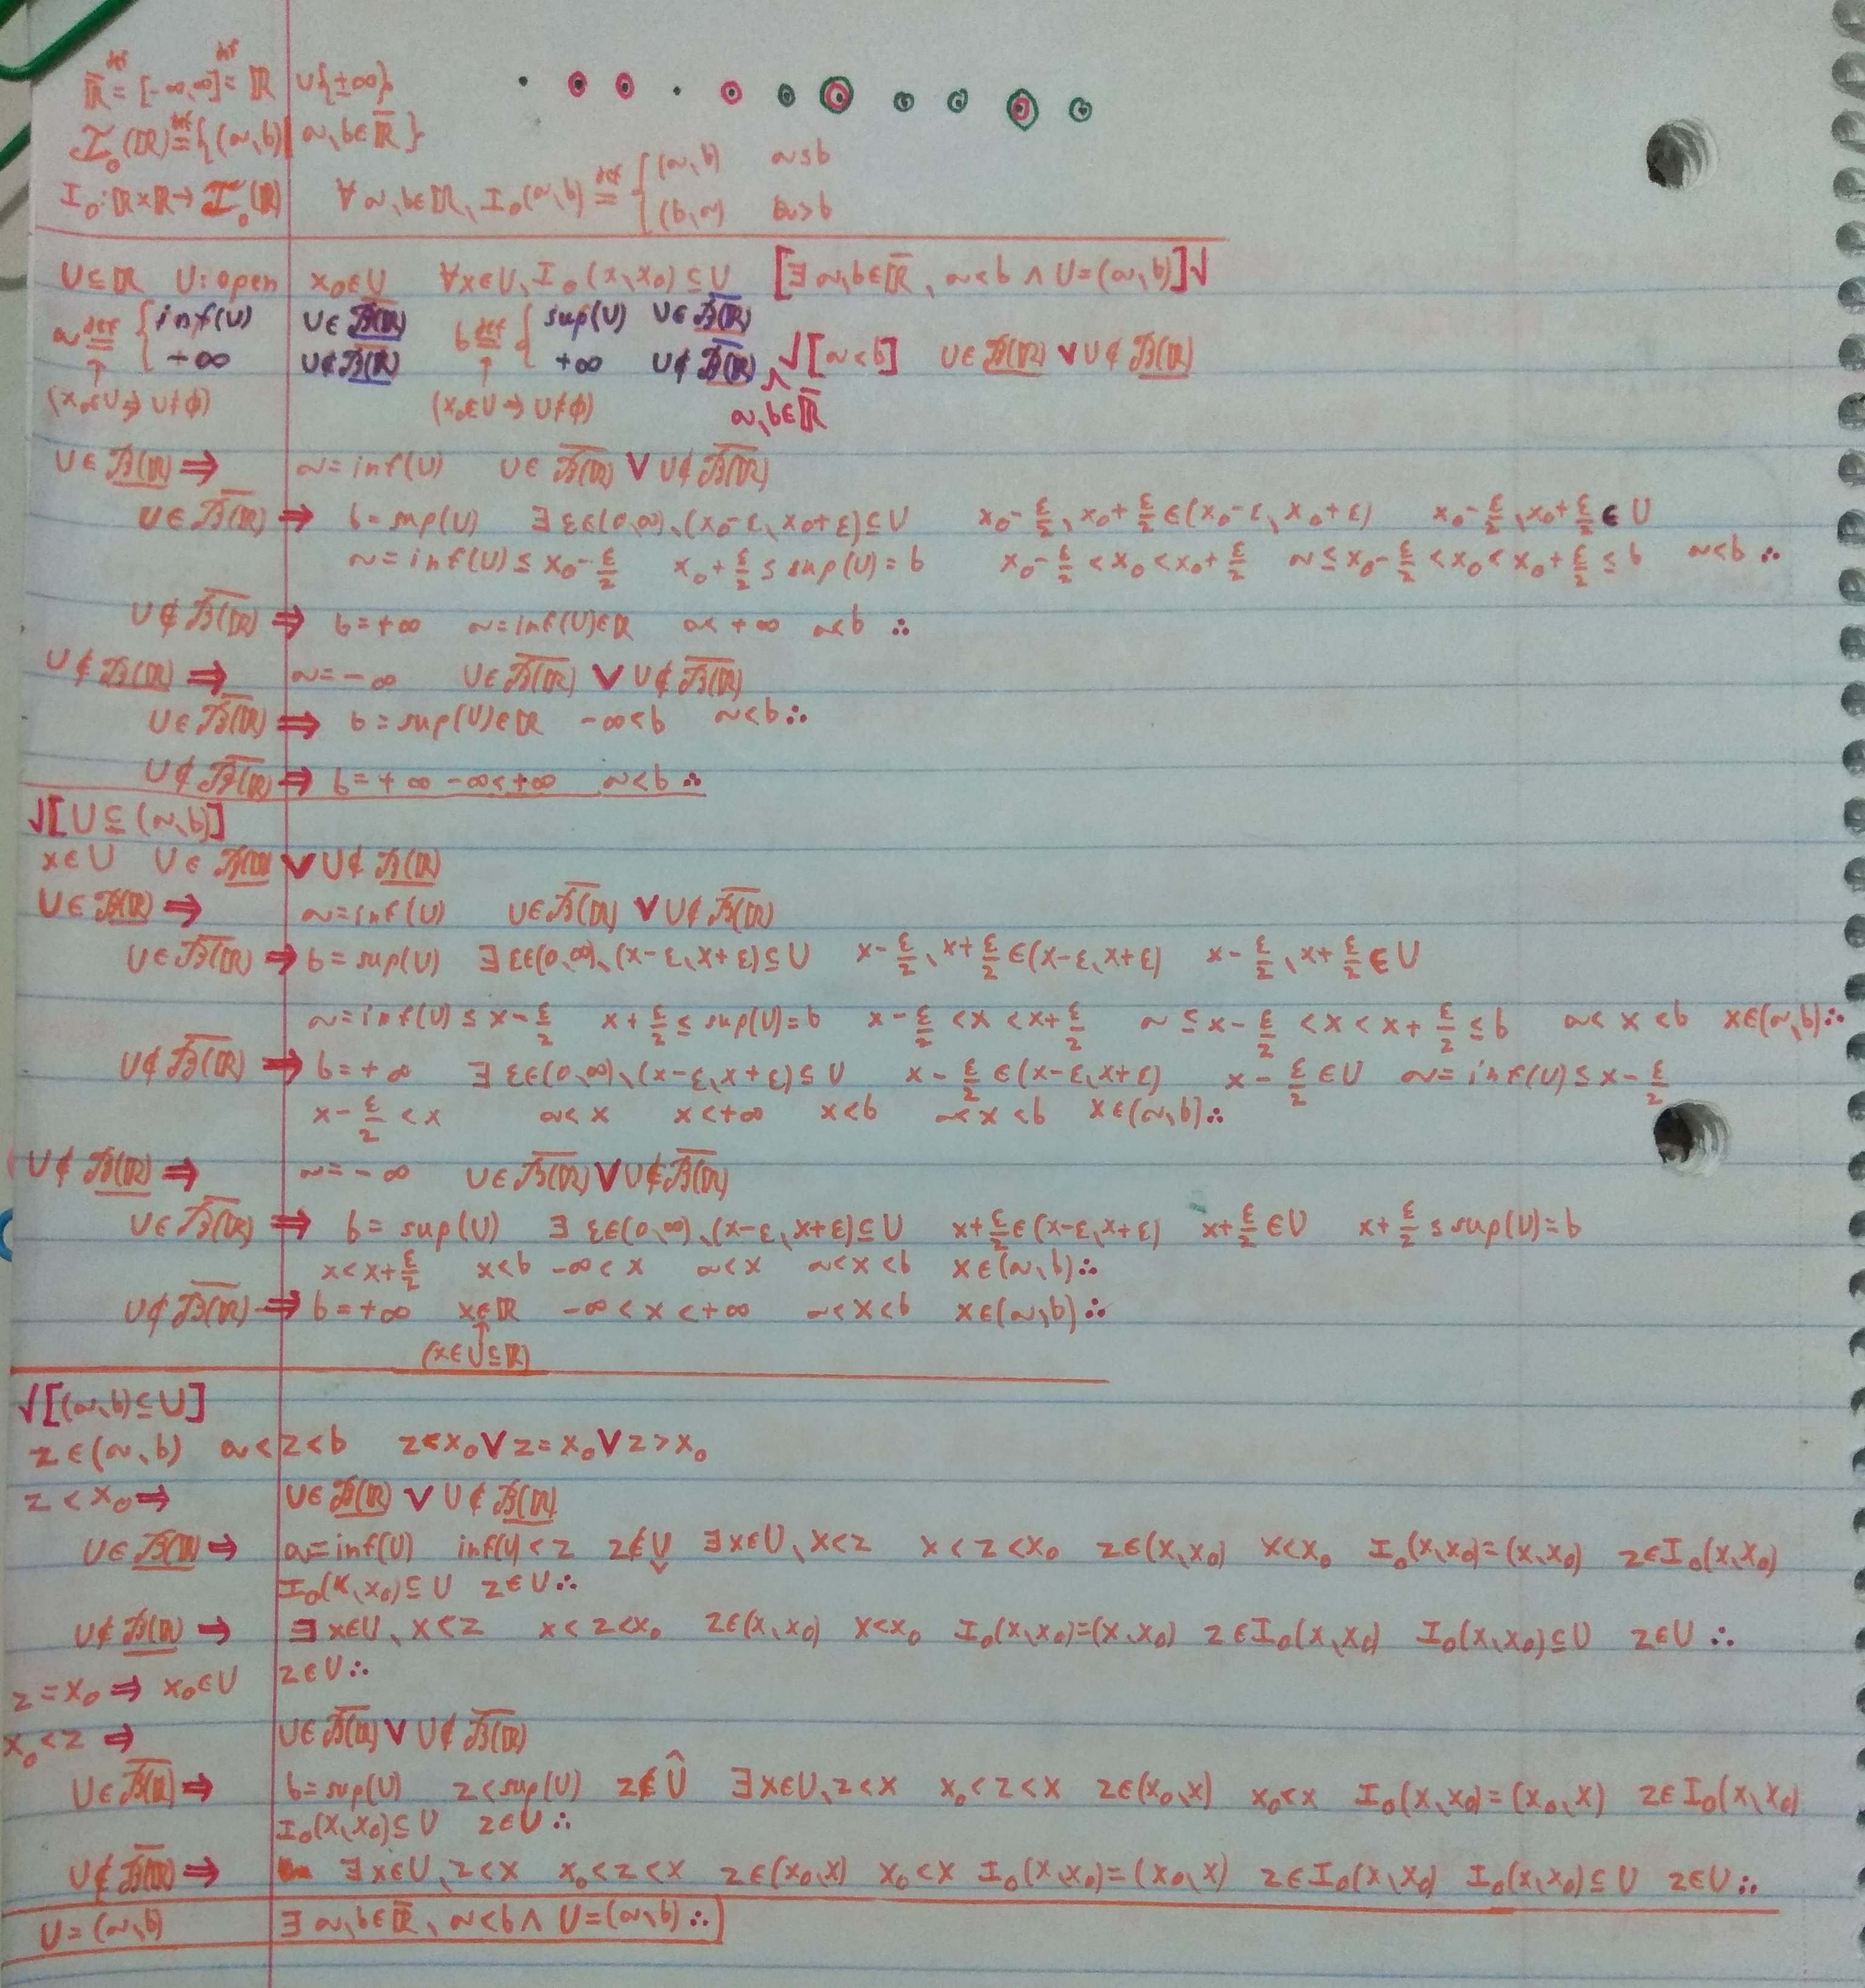 ℝ̄ ≝ [-∞,∞] ≝ ℝ ∪{±∞}
𝓘₀(ℝ) ≝ {(a,b) | a,b∈ℝ̄}
I₀:ℝ×ℝ→𝓘₀(ℝ) ∀a,b∈ℝ, I₀(a,b) ≝ { (a,b) a≤b
(b,a) a>b
U⊆ℝ U:open x₀∈U ∀x∈U, I₀(x,x₀)⊆U [∃a,b∈ℝ̄, a<b ∧ U=(a,b)]√
a ≝ { inf(U) U∈𝓑̲(ℝ̲) b ≝ { sup(U) U∈𝓑̅(ℝ̅)
-∞ U∉𝓑̲(ℝ̲) +∞ U∉𝓑̅(ℝ̅) √[a<b] U∈𝓑̲(ℝ̲) ∨ U∉𝓑̲(ℝ̲)
(x₀∈U⇒U≠∅) (x₀∈U⇒U≠∅) ∧ a,b∈ℝ̄
U∈𝓑̲(ℝ̲) ⇒ a=inf(U) U∈𝓑̅(ℝ̅) ∨ U∉𝓑̅(ℝ̅)
U∈𝓑̅(ℝ̅) ⇒ b=sup(U) ∃ε∈(0,∞),(x₀-ε,x₀+ε)⊆U x₀-ε/2, x₀+ε/2∈(x₀-ε,x₀+ε) x₀-ε/2, x₀+ε/2∈U
a=inf(U)≤x₀-ε/2 x₀+ε/2≤sup(U)=b x₀-ε/2<x₀<x₀+ε/2 a≤x₀-ε/2<x₀<x₀+ε/2≤b a<b∴
U∉𝓑̅(ℝ̅) ⇒ b=+∞ a=inf(U)∈ℝ a<+∞ a<b∴
U∉𝓑̲(ℝ̲) ⇒ a=-∞ U∈𝓑̅(ℝ̅) ∨ U∉𝓑̅(ℝ̅)
U∈𝓑̅(ℝ̅) ⇒ b=sup(U)∈ℝ -∞<b a<b∴
U∉𝓑̅(ℝ̅) ⇒ b=+∞ -∞<+∞ a<b∴
√[U⊆(a,b)]
x∈U U∈𝓑̲(ℝ̲) ∨ U∉𝓑̲(ℝ̲)
U∈𝓑̲(ℝ̲) ⇒ a=inf(U) U∈𝓑̅(ℝ̅) ∨ U∉𝓑̅(ℝ̅)
U∈𝓑̅(ℝ̅) ⇒ b=sup(U) ∃ε∈(0,∞),(x-ε,x+ε)⊆U x-ε/2, x+ε/2∈(x-ε,x+ε) x-ε/2, x+ε/2∈U
a=inf(U)≤x-ε/2 x+ε/2≤sup(U)=b x-ε/2<x<x+ε/2 a≤x-ε/2<x<x+ε/2≤b a<x<b x∈(a,b)∴
U∉𝓑̅(ℝ̅) ⇒ b=+∞ ∃ε∈(0,∞),(x-ε,x+ε)⊆U x-ε/2∈(x-ε,x+ε) x-ε/2∈U a=inf(U)≤x-ε/2
x-ε/2<x a<x x<+∞ x<b a<x<b x∈(a,b)∴
U∉𝓑̲(ℝ̲) ⇒ a=-∞ U∈𝓑̅(ℝ̅) ∨ U∉𝓑̅(ℝ̅)
U∈𝓑̅(ℝ̅) ⇒ b=sup(U) ∃ε∈(0,∞),(x-ε,x+ε)⊆U x+ε/2∈(x-ε,x+ε) x+ε/2∈U x+ε/2≤sup(U)=b
x<x+ε/2 x<b -∞<x a<x a<x<b x∈(a,b)∴
U∉𝓑̅(ℝ̅) ⇒ b=+∞ x∈ℝ -∞<x<+∞ a<x<b x∈(a,b)∴
(x∈U⊆ℝ)
√[(a,b)⊆U]
z∈(a,b) a<z<b z<x₀ ∨ z=x₀ ∨ z>x₀
z<x₀ ⇒ U∈𝓑̲(ℝ̲) ∨ U∉𝓑̲(ℝ̲)
U∈𝓑̲(ℝ̲) ⇒ a=inf(U) inf(U)<z z∉U̬ ∃x∈U, x<z x<z<x₀ z∈(x,x₀) x<x₀ I₀(x,x₀)=(x,x₀) z∈I₀(x,x₀)
I₀(x,x₀)⊆U z∈U∴
U∉𝓑̲(ℝ̲) ⇒ ∃x∈U, x<z x<z<x₀ z∈(x,x₀) x<x₀ I₀(x,x₀)=(x,x₀) z∈I₀(x,x₀) I₀(x,x₀)⊆U z∈U∴
z=x₀ ⇒ x₀∈U z∈U∴
x₀<z ⇒ U∈𝓑̅(ℝ̅) ∨ U∉𝓑̅(ℝ̅)
U∈𝓑̅(ℝ̅) ⇒ b=sup(U) z<sup(U) z∉Û ∃x∈U, z<x x₀<z<x z∈(x₀,x) x₀<x I₀(x,x₀)=(x₀,x) z∈I₀(x,x₀)
I₀(x,x₀)⊆U z∈U∴
U∉𝓑̅(ℝ̅) ⇒ ∃x∈U, z<x x₀<z<x z∈(x₀,x) x₀<x I₀(x,x₀)=(x₀,x) z∈I₀(x,x₀) I₀(x,x₀)⊆U z∈U∴
U=(a,b) ∃a,b∈ℝ̄, a<b ∧ U=(a,b)∴